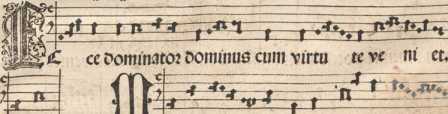 Ecce dominator dominus cum virtute veniet.